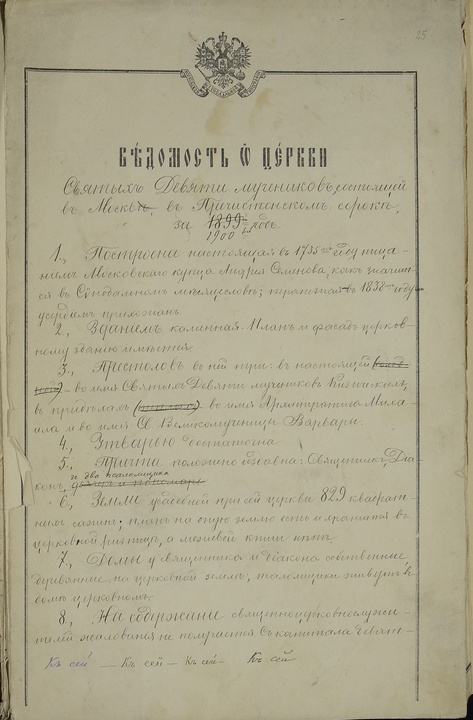 25
ВѢДОМОСТЬ Ѿ ЦЕРКВИ
Святыхъ Девяти мучениковъ, состоящей
въ Москвѣ, въ Пречистенскомъ сорокѣ,
за 1899 годъ.
1900
1., Построена настоящая въ 1735 году тща-
ніемъ Московскаго купца Андрея Семенова, какъ значит-
ся въ Сѵнодальномъ мѣсяцесловѣ; трапезная въ 1838 году
усердіемъ прихожанъ.
2., Зданіемъ каменная. Планъ и фасадъ церков-
ному зданію имѣются
3., Престоловъ въ ней три: въ настоящей
во имя Святыхъ Девяти мучениковъ Кизическихъ,
въ придѣлахъ во имя Архистратига Миха-
ила и во имя Св. Великомученицы Варвары.
4., Утварью достаточна.
5., Причта положено издавна: Священникъ, Діа-
и два псаломщика
конъ, дьячекъ и пономарь
6., Земли усадебной при сей церкви 829 квадрат-
ныхъ сажень; планъ на оную землю есть и хранится въ
церковной ризницѣ, а межевой книги нѣтъ.
7., Домы у священника и діакона собственные
деревянные, на церковной землѣ; псаломщики живутъ въ
домѣ церковномъ.
8., На содержаніе священноцерковнослужи-
телей жалованья не получается. Съ капитала
Къ сей — Къ сей — Къ сей — Къ сей